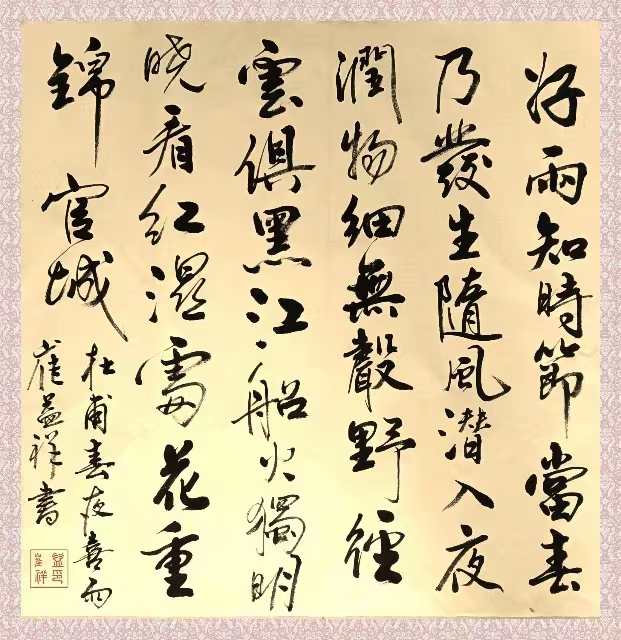 好雨知時節當春
乃發生隨風潜入夜
潤物細無聲野徑
雲俱黑江船火獨明
晓看红濕處花重
錦官城
杜甫春夜喜雨
崔益祥書